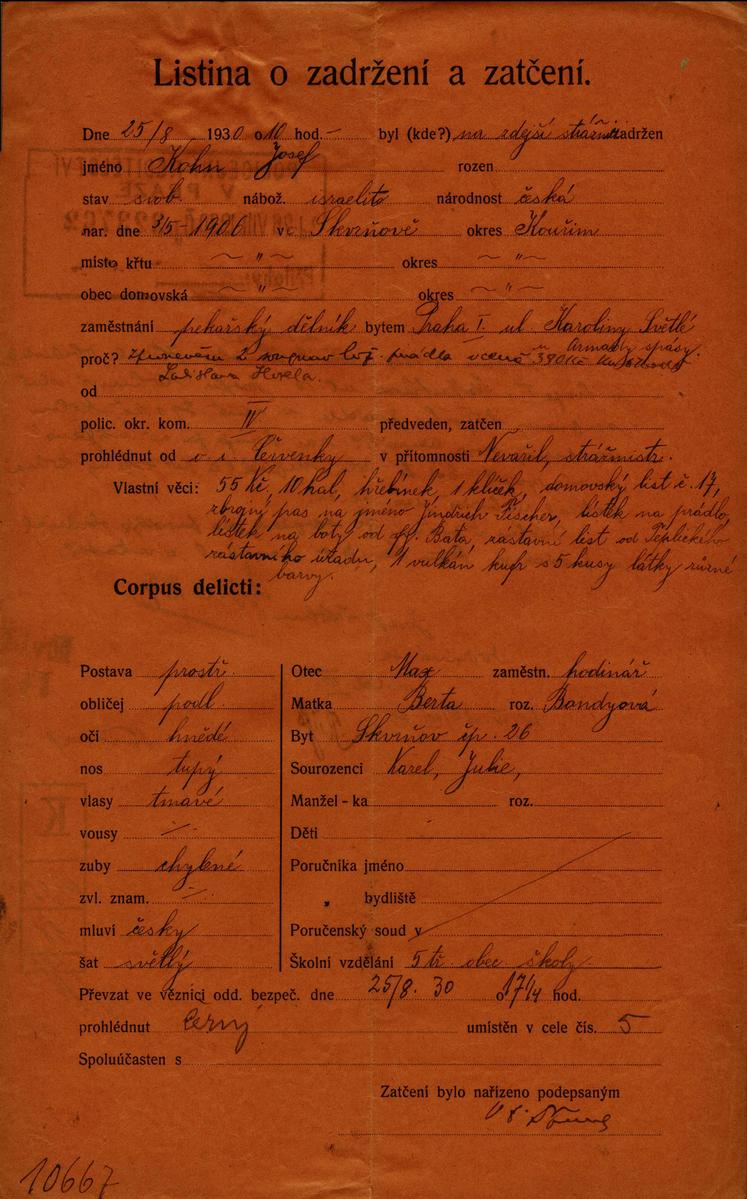 Listina o zadržení a zatčení.
Dne 25/8 1930 o 10 hod.- byl (kde?) na zdejší strážn. zadržen
jméno Kohn Josef rozen
stav svob. nábož. israelita národnost česká
nar. dne 3/5-1906 v Skvrňově okres Kouřim
místo křtu — " — okres — " —
obec domovská — " — okres — " —
zaměstnání pekařský dělník bytem Praha I. ul. Karoliny Světlé
u Armády spásy.
proč? Zpronevěra 2 prádla v ceně 390 Kč
od Ladislava
polic. okr. kom. IV předveden, zatčen
prohlédnut od v. i. Červenky v přítomnosti Nevařil, strážmistr.
Vlastní věci: 55 Kč, 10 hal, hřebínek, 1 klíček, domovský list č. 17,
zbrojní pas na jméno Jindřich Fischer, lístek na prádlo,
lístek na boty od fy. Baťa, zástavní list od Teplického
zástavního úřadu, 1 vulkán kufr s 5 kusy látky různé
barvy.
Corpus delicti:
Postava prostř.
obličej podl.
oči hnědé
nos tupý
vlasy tmavé
vousy -/-
zuby chybné
zvl. znam. -/-
mluví česky
šat světlý
Otec Max zaměstn. hodinář
Matka Berta roz. Bondyová
Byt Skvrňov čp. 26
Sourozenci Karel, Julie,
Manžel-ka roz.
Děti
Poručníka jméno
„ bydliště
Poručenský soud v
Školní vzdělání 5 tř. obec. školy
Převzat ve věznici odd. bezpeč. dne 25/8. 30 o 17 1/4 hod.
prohlédnut Černý umístěn v cele čís. 5
Spoluúčasten s
Zatčení bylo nařízeno podepsaným
10667